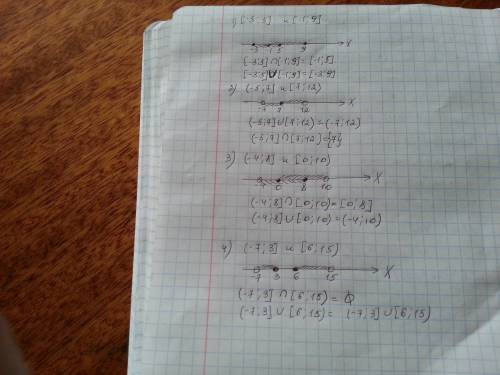 1) [-3;5] и [-1;9]
-3 -1 5 9 X
[-3;5]∩[-1;9]=[-1;5]
[-3;5]∪[-1;9]=[-3;9]
2) (-5;7] и [7;12)
7 12 X
(-5;7]∪[7;12)=(-7;12)
(-5;7]∩[7;12)={7}
3) (-4;8] и [0;10)
0 8 10 X
(-4;8]∩[0;10)=[0;8]
(-4;8]∪[0;10)=(-4;10)
4) (-7;3] и [6;15)
-7 3 6 15 X
(-7;3]∩[6;15)=Ø
(-7;3]∪[6;15)= (-7;3]∪[6;15)